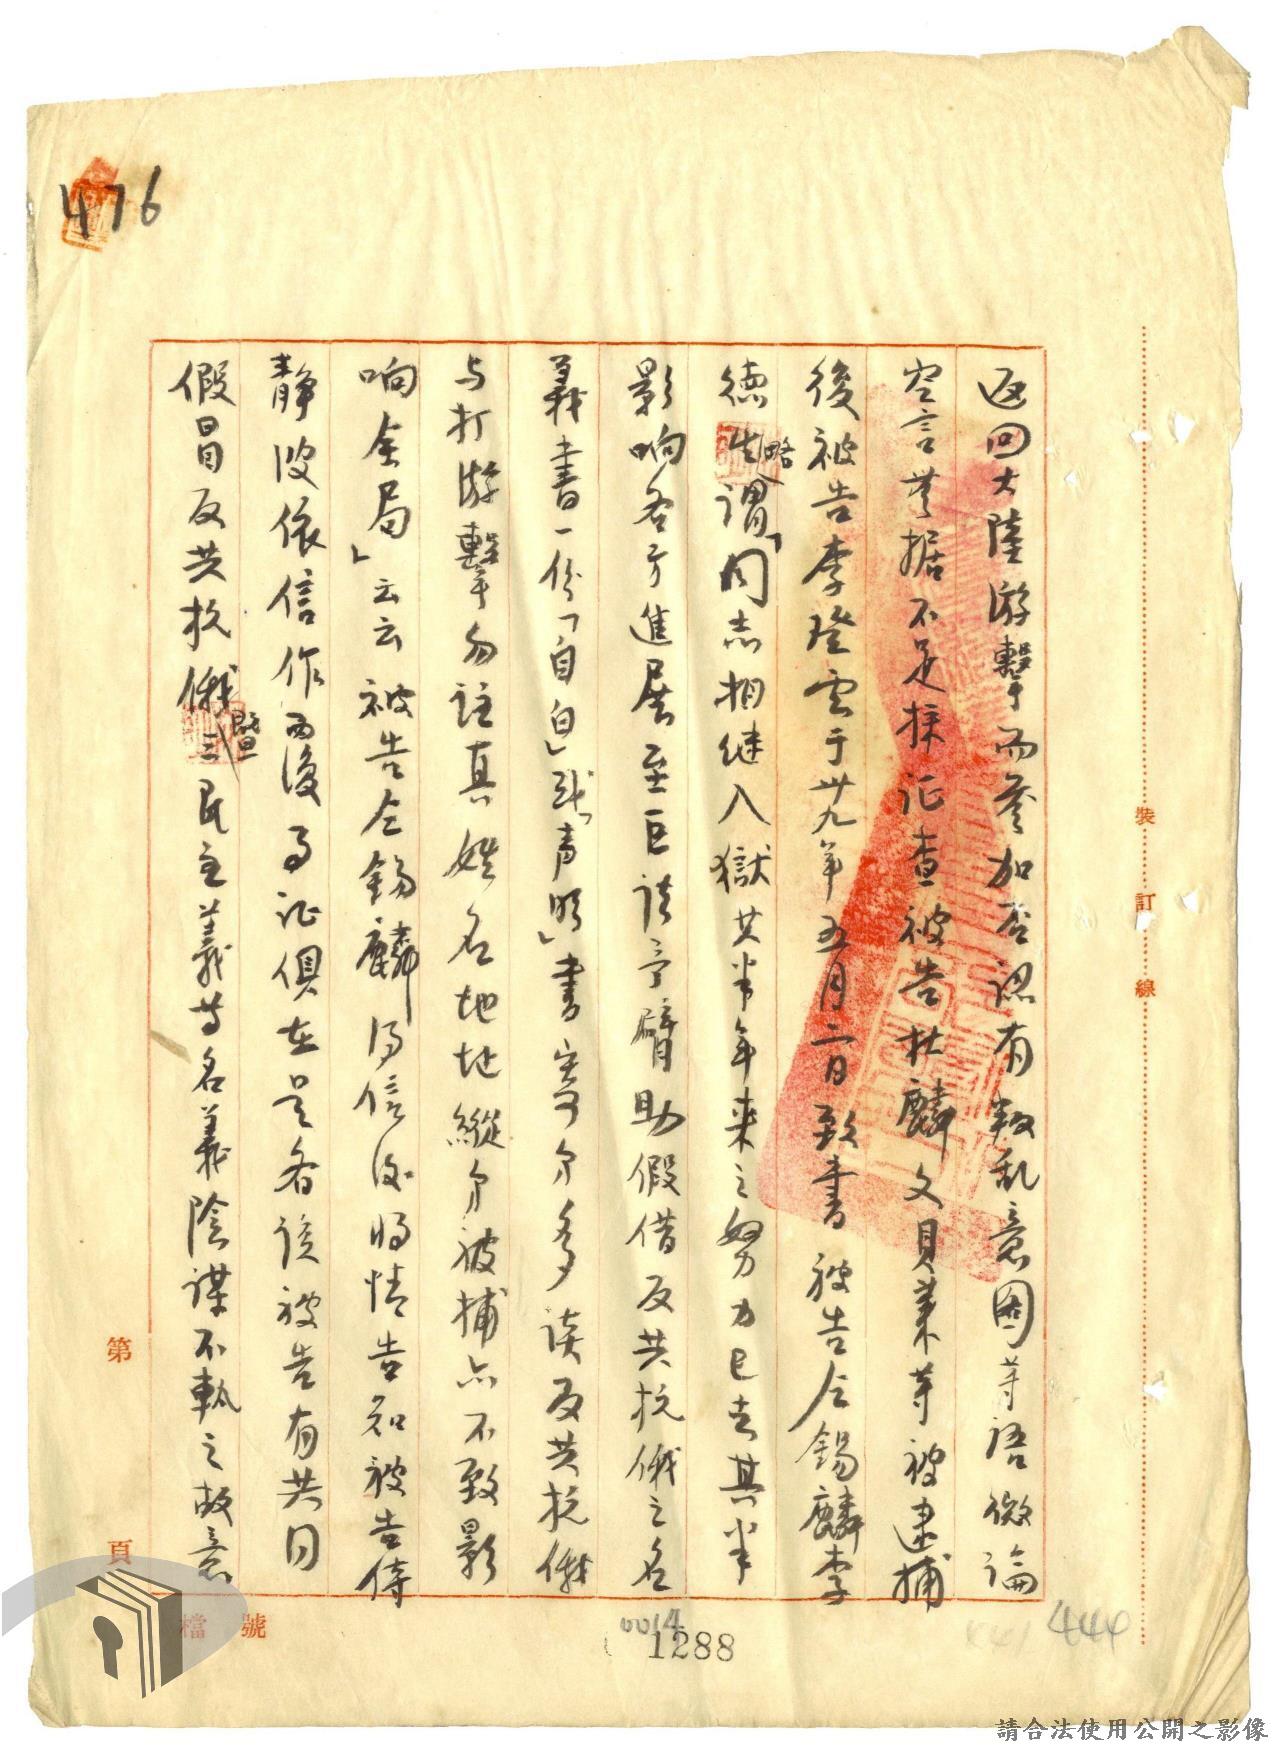 476
返回大陸游擊而參加否認有叛乱意圖等語微論
空言無据不足採証查被告杜麟文貝萊等被逮捕
後被告李登云于卅九年五月二日致書被告仝錫麟李
德生略謂「同志相继入獄共半年来之努力已去其半
影响各方進展至巨該予臂助假借反共抗俄之名
義書一份「自白」或「声明」書寄弟多談反共抗俄
与打游擊勿註真姓名地址縱弟被捕亦不致影
响全局」云云被告仝錫麟得信後將情告知被告侍
静波依信作而後事证俱在是各該被告有共同
假冒反共抗俄暨三民主義等名義陰謀不軌之故意
裝
訂
線
第
頁
檔 號
0014
1288
444
請合法使用公開之影像